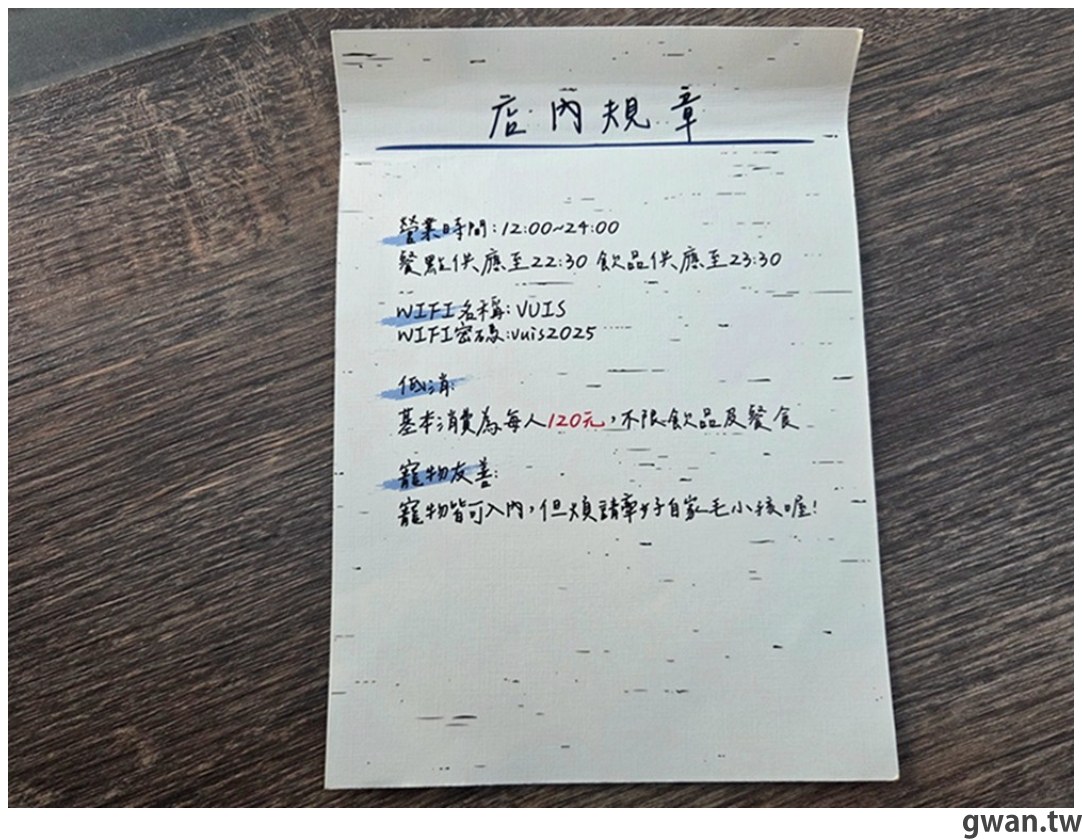 店內規章
營業時間:12:00~24:00
餐點供應至22:30 飲品供應至23:30
WIFI名稱:VUIS
WIFI密碼:vuis2025
低消:
基本消費為每人120元,不限飲品及餐食
寵物友善:
寵物皆可入內,但煩請牽好自家毛小孩喔!
gwan.tw